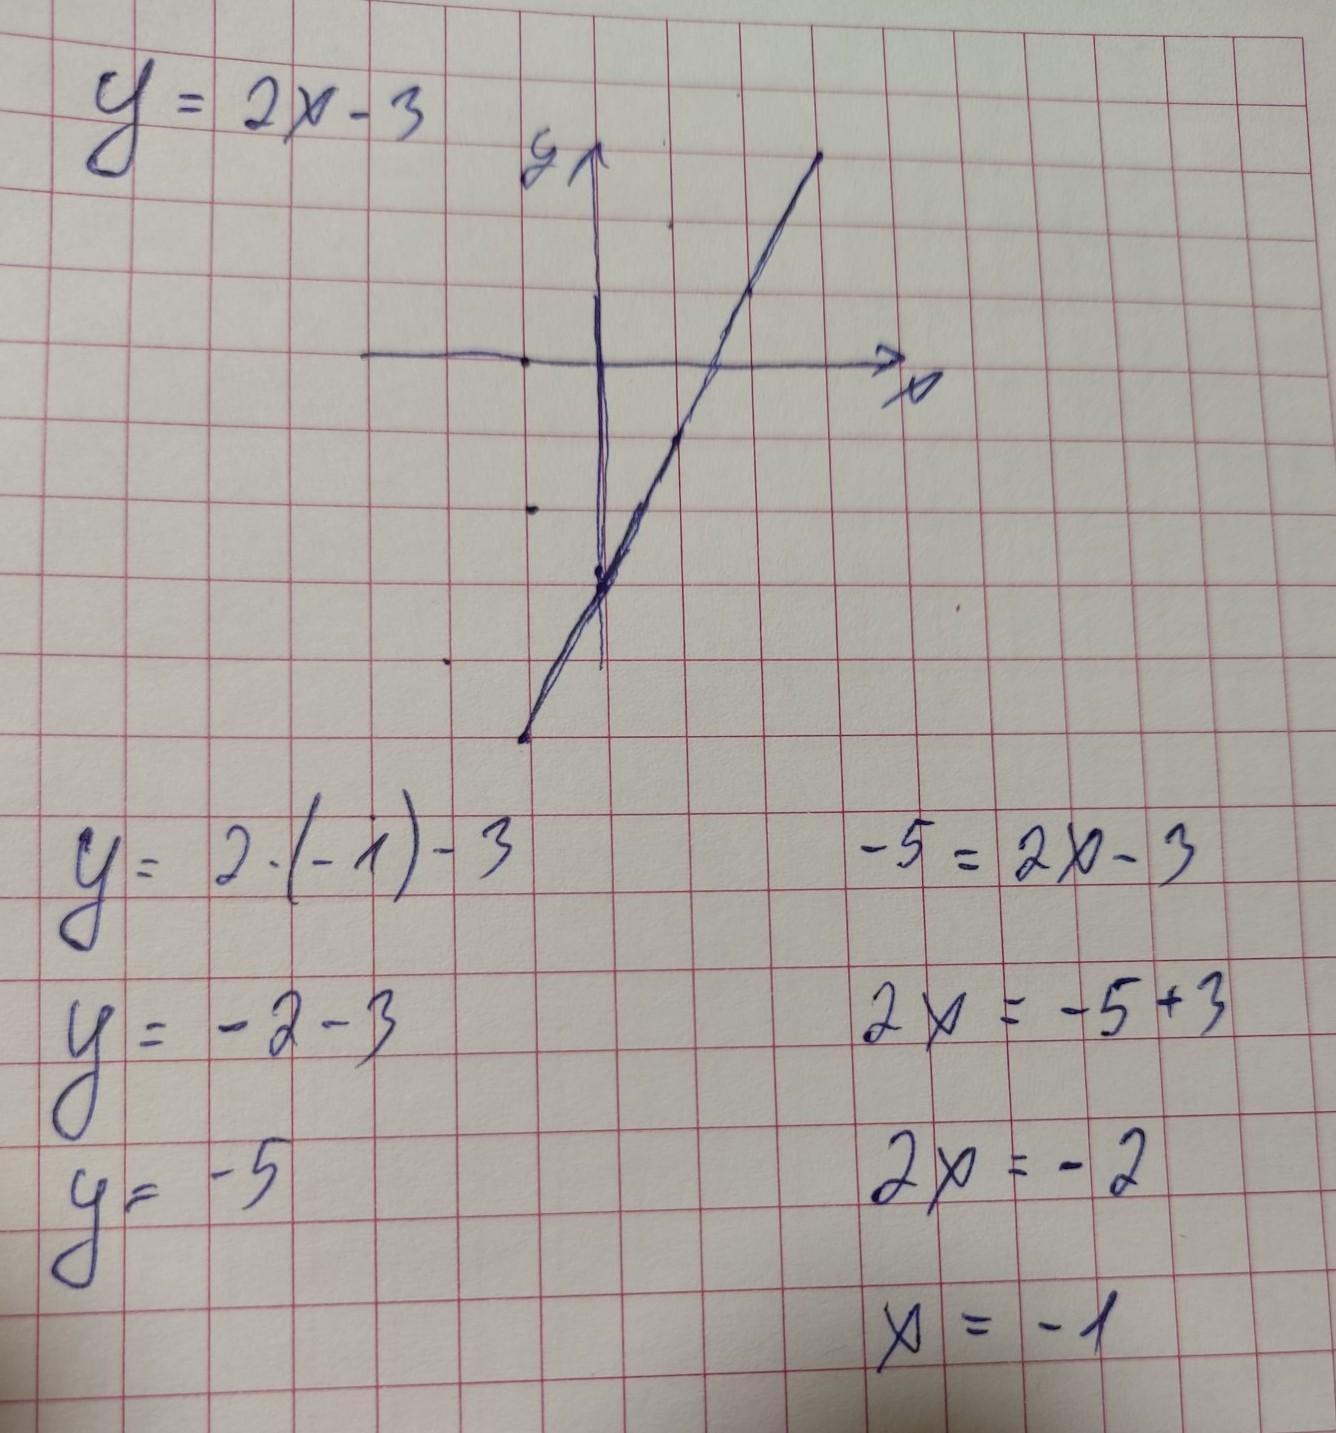 y = 2x - 3
y
x
y = 2·(-1) - 3
y = -2 - 3
y = -5
-5 = 2x - 3
2x = -5 + 3
2x = -2
x = -1